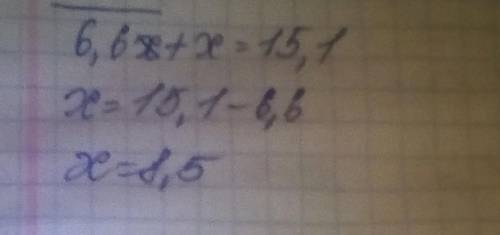 6,6x+x=15,1
x=15,1-6,6
x=8,5